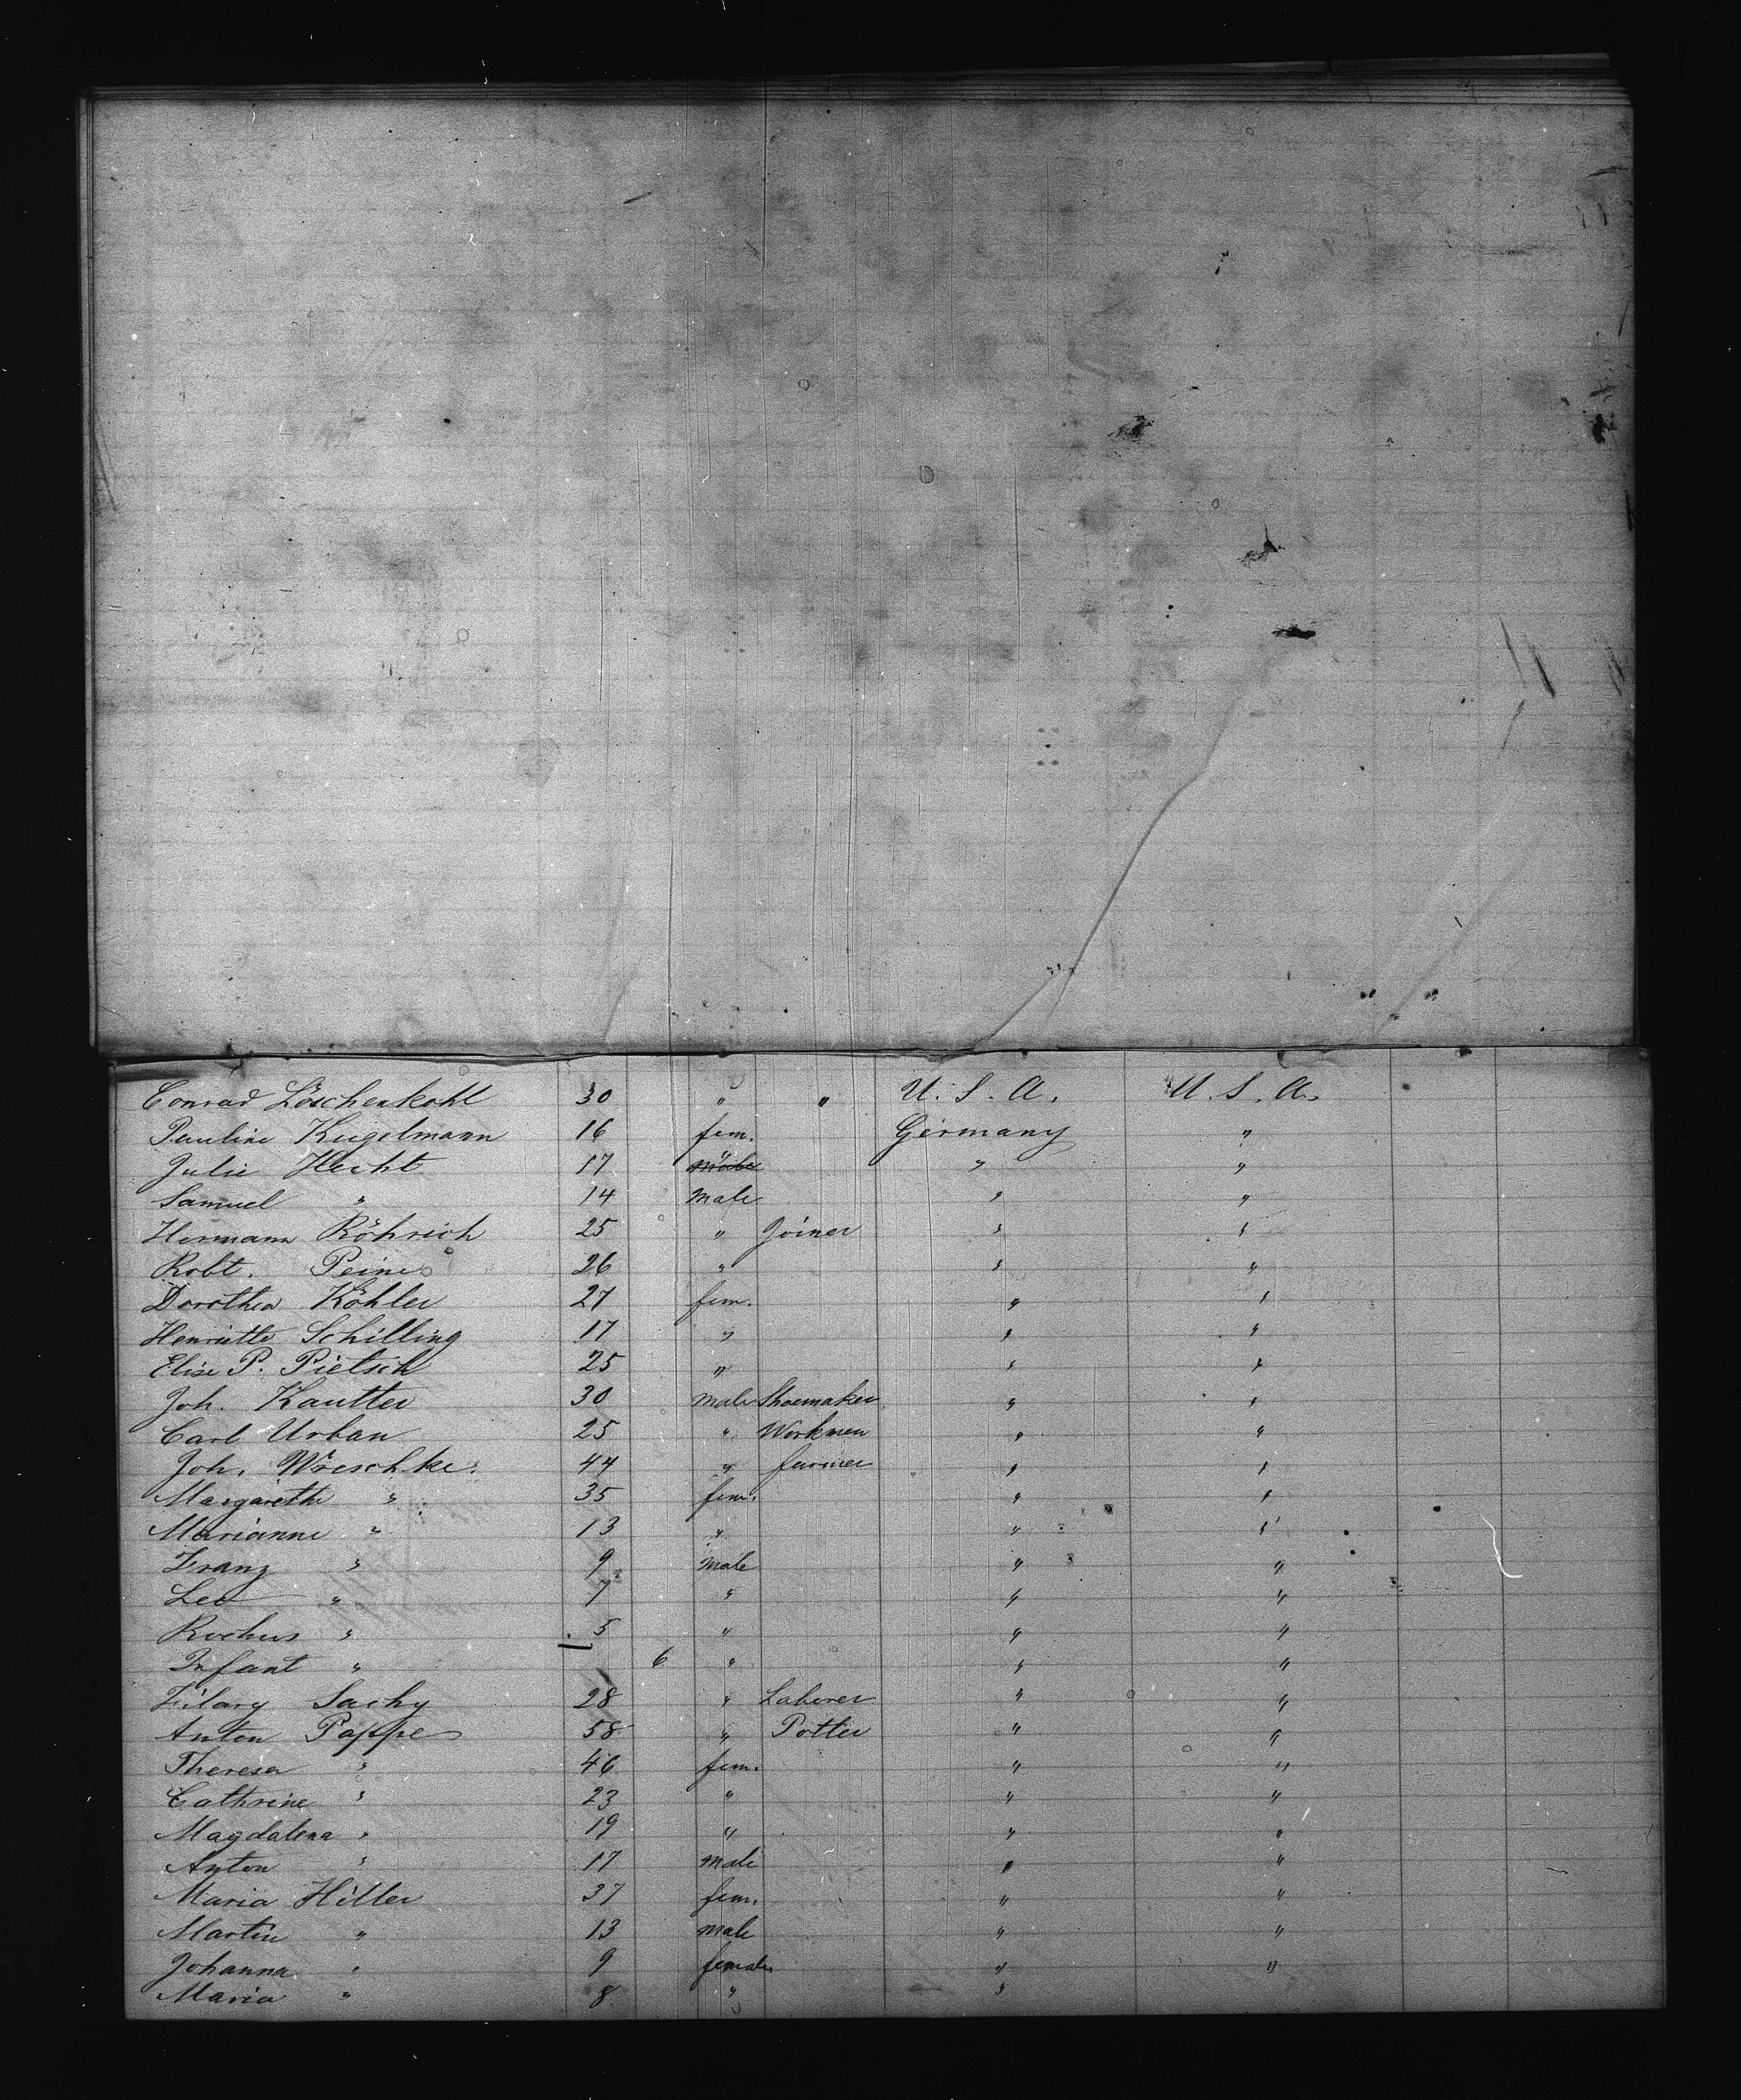 Conrad Löschenkohl 30 " " U. S. A. U. S. A.
Pauline Kugelmann 16 fem. Germany "
Julie Hecht 17 " " "
Samuel " 14 male " "
Hermann Röhrich 25 " Joiner " "
Robt. Peine 26 " " "
Dorothea Köhler 27 fem. " "
Henriette Schilling 17 " " "
Elise P. Pietsch 25 " " "
Joh. Kautter 30 male Shoemaker " "
Carl Urban 25 " Workmen " "
Joh. Wreschke 44 " farmer " "
Margarethe " 35 fem. " "
Marianne " 13 " " "
Franz " 9 male " "
Leo " 7 " " "
Rochus " 5 " " "
Infant " 6 " " "
Hilary Sachy 28 " Laborer " "
Anton Pappe 58 " Potter " "
Theresa " 46 fem. " "
Cathrine " 23 " " "
Magdalena " 19 " " "
Anton " 17 male " "
Maria Hiller 37 fem. " "
Martin " 13 male " "
Johanna " 9 female " "
Maria " 8 " "